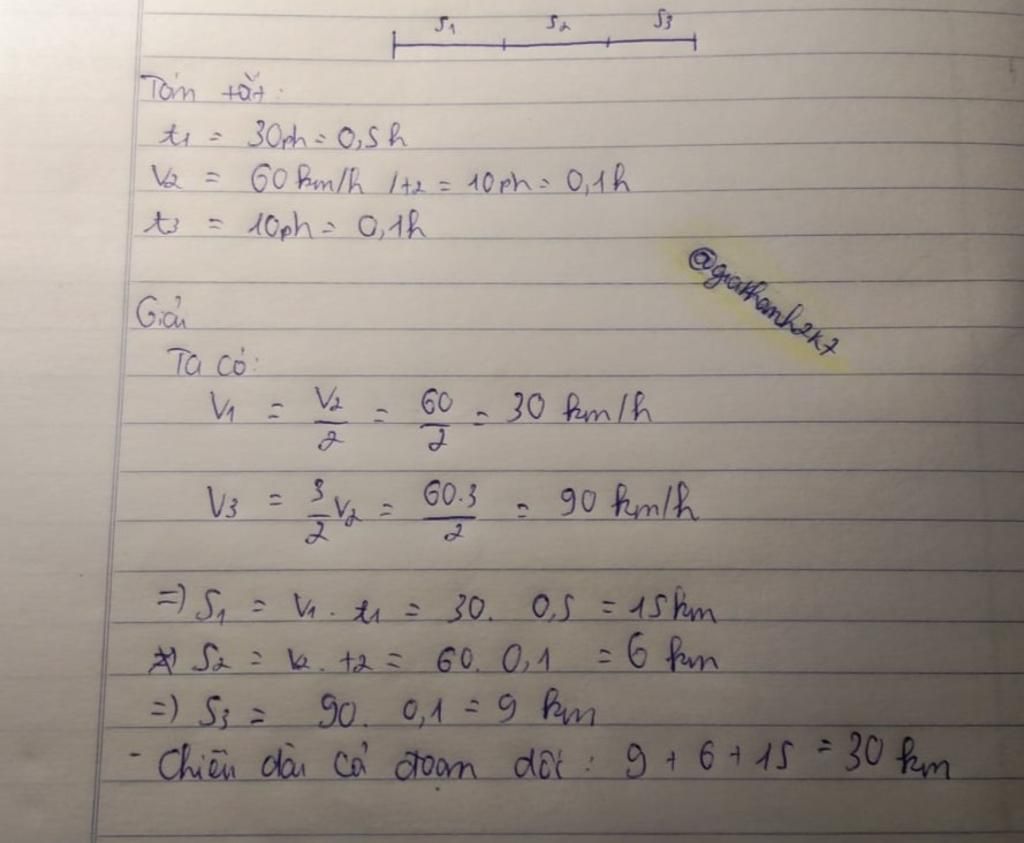 S1 S2 S3
Tóm tắt:
t1 = 30ph = 0,5h
V2 = 60km/h / t2 = 10ph = 0,1h
t3 = 10ph = 0,1h
@giakhanh2k7
Giải
Ta có:
V1 = V2/2 = 60/2 = 30 km/h
V3 = 3/2 V2 = 60.3/2 = 90 km/h
=) S1 = V1 . t1 = 30. 0,5 = 15km
=) S2 = V2 . t2 = 60. 0,1 = 6 km
=) S3 = 90. 0,1 = 9 km
- Chiều dài cả đoạn dốc : 9 + 6 + 15 = 30 km